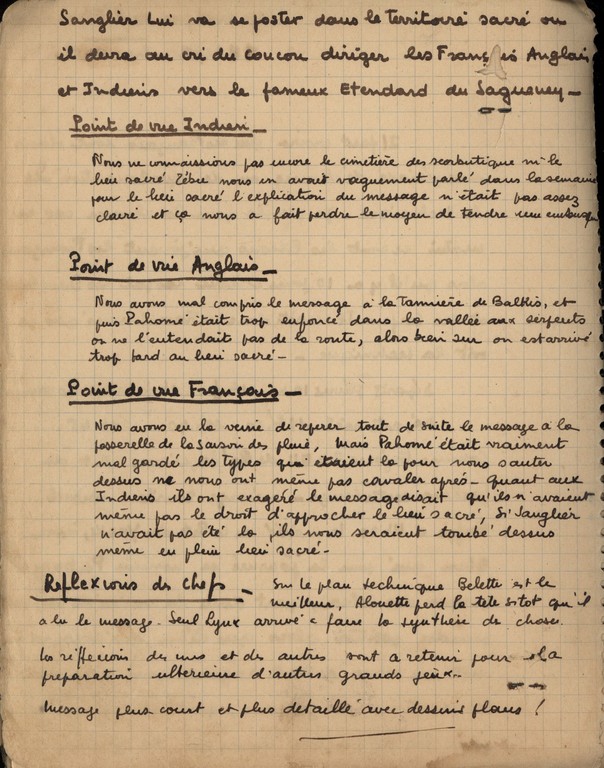 Sanglier Lui va se poster dans le territoire sacré ou
il devra au cri du coucou diriger les Français Anglais
et Indiens vers le fameux Etendard du Sagueney -
Point de vue Indien -
Nous ne connaissions pas encore le cimetière des scorbutique ni le
lieu sacré Zébu nous en avait vaguement parlé dans la semaine
pour le lieu sacré l'explication du message n'était pas assez
claire et ça nous a fait perdre le moyen de tendre une embuscade
Point de vue Anglais -
Nous avons mal compris le message à la Tannière de Balkis, et
puis Pahomé était trop enfoncé dans la vallée aux serpents
on ne l'entendait pas de la route, alors bien sur on est arrivé
trop tard au lieu sacré -
Point de vue Français -
Nous avons eu la veine de reperer tout de suite le message à la
passerelle de la Saison des pluie, mais Pahomé était vraiment
mal gardé les types qui étaient la pour nous sauter
dessus ne nous ont même pas cavaler après - quant aux
Indiens ils ont exagéré le message disait qu'ils n'avaient
même pas le droit d'approcher le lieu sacré, Si Sanglier
n'avait pas été la, ils nous seraient tombé dessus
même en plein lieu sacré -
Reflexions des chefs - Sur le plan technique Belette est le
meilleur, Alouette perd la tete sitot qu'il
a lu le message. Seul Lynx arrive a faire la synthèse de chose.
Les réflexions des uns et des autres sont a retenir pour la
préparation ulterieure d'autres grands jeux -
Message plus court et plus detaillé avec dessins plans !